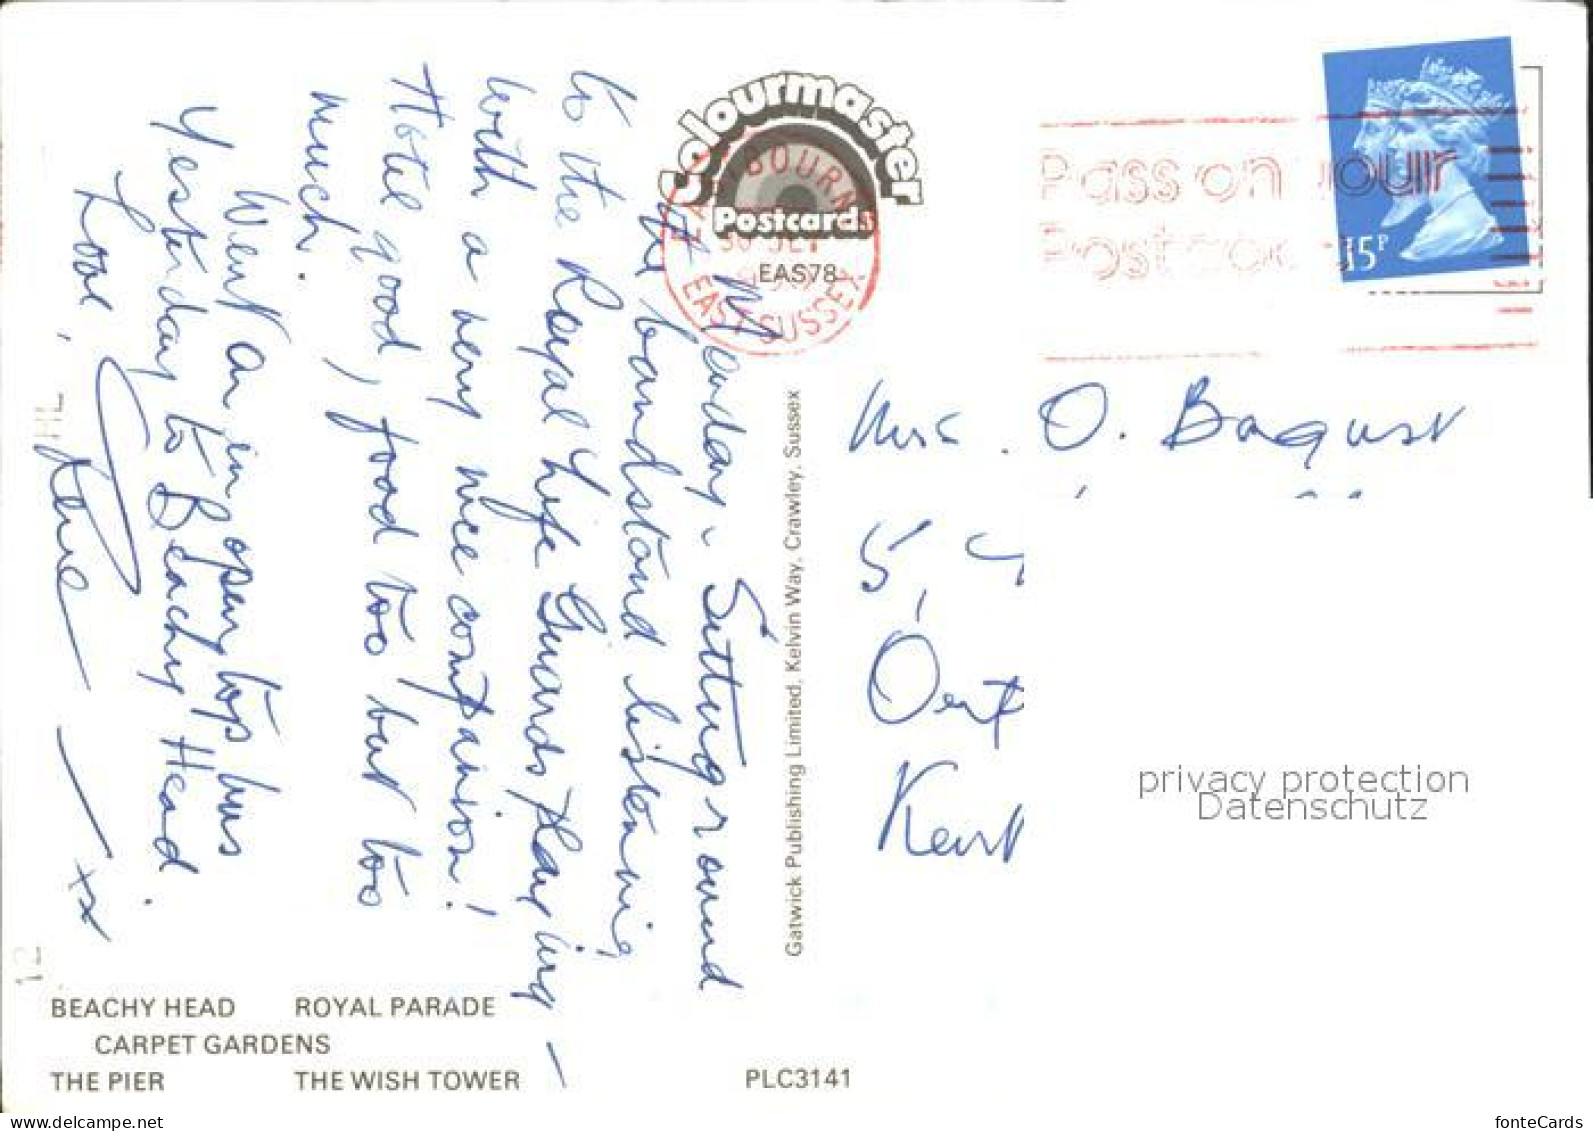 Monday. Sitting round
the bandstand listening
to the Royal Life Guards playing —
with a very nice companion!
Hotel good, food too but too
much.
Went on in open tops bus
Yesterday to Beachy Head.
Love,
xx
BEACHY HEAD ROYAL PARADE
CARPET GARDENS
THE PIER THE WISH TOWER
PLC3141
Colourmaster
Postcards
EAS78
EAST SUSSEX
Gatwick Publishing Limited, Kelvin Way, Crawley, Sussex
Pass on your
Postcode
15P
Mrs. O. Bagust
5,
Kent
privacy protection
Datenschutz
12
HL
my-dear-valentine.net
fonteCards